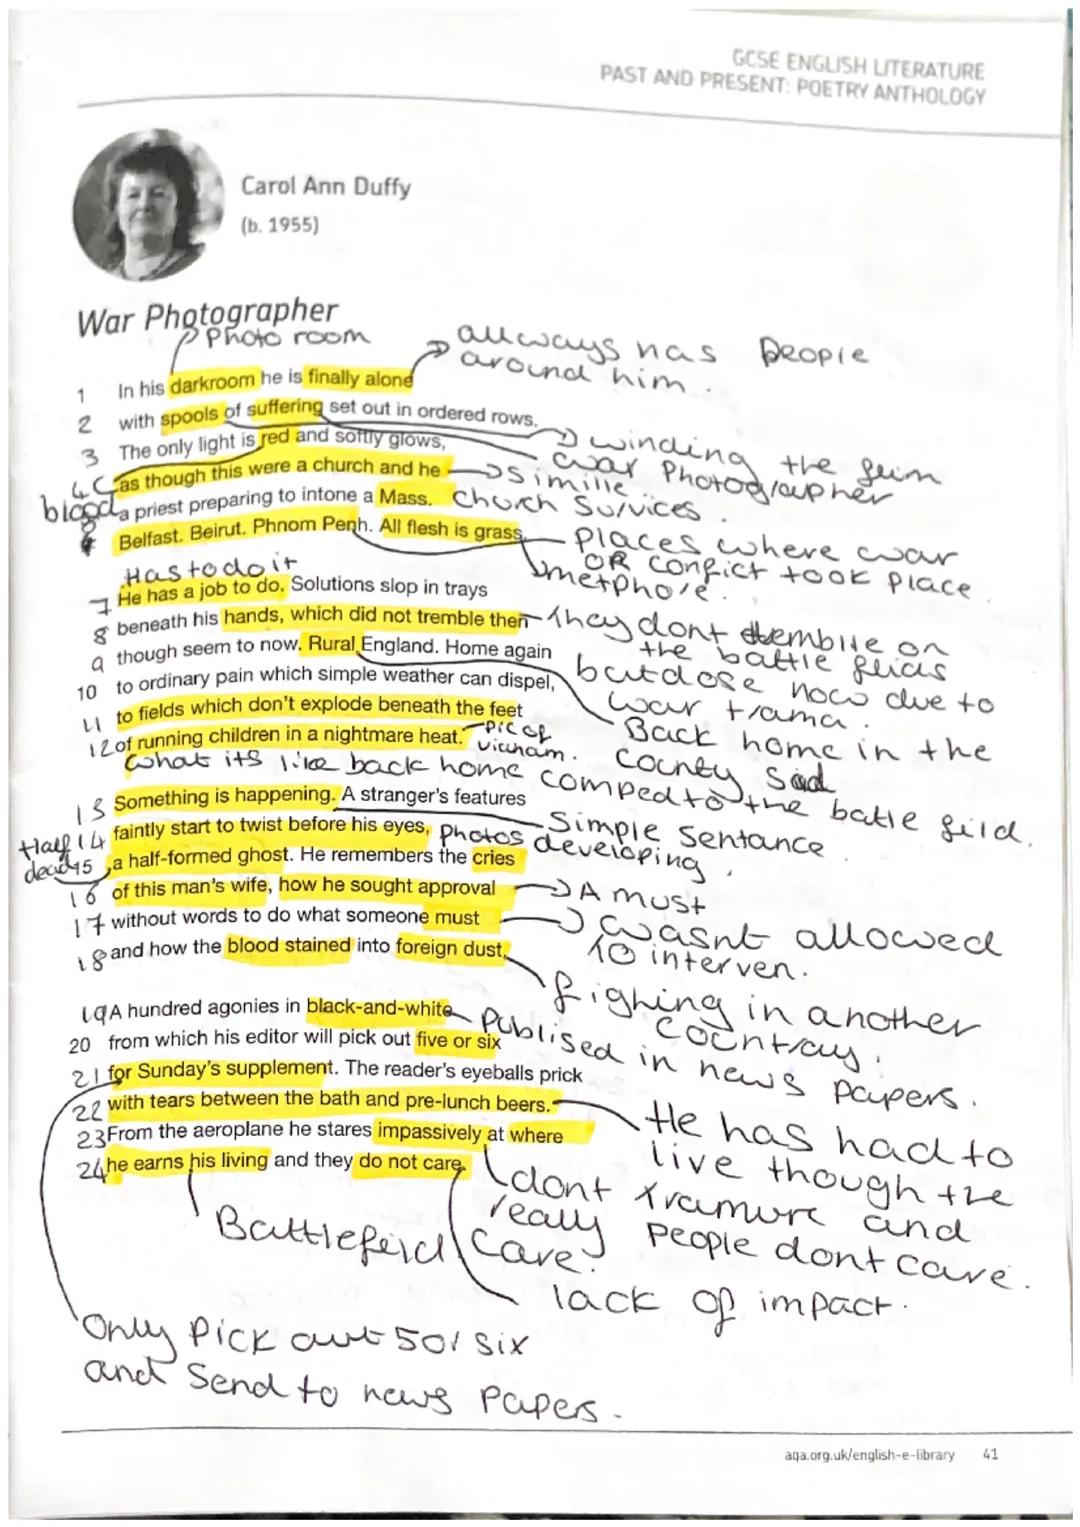 GCSE ENGLISH LITERATURE
PAST AND PRESENT: POETRY ANTHOLOGY
Carol Ann Duffy
(b. 1955)
War Photographer
Photo room
allways has People
around him.
1 In his darkroom he is finally alone
2 with spools of suffering set out in ordered rows.
winding the feim
3 The only light is red and softly glows,
war Photographer
4 as though this were a church and he
Simille
blood
a priest preparing to intone a Mass.
Church Survices.
Belfast. Beirut. Phnom Penh. All flesh is grass.
Places where war
OR confict took place.
metphore.
Has to do it
7 He has a job to do. Solutions slop in trays
8 beneath his hands, which did not tremble then
they dont tembile on
the battle feids
9 though seem to now. Rural England. Home again
but dose now due to
war trama.
10 to ordinary pain which simple weather can dispel,
11 to fields which don't explode beneath the feet
Back home in the
County Sid
12 of running children in a nightmare heat.
Pic of
vicnam.
What its like back home comped to the batle feild.
13 Something is happening. A stranger's features
Simple Sentance
14 faintly start to twist before his eyes,
Photos developing.
Half
dead
15 a half-formed ghost. He remembers the cries
16 of this man's wife, how he sought approval
A must
17 without words to do what someone must
wasnt allowed
to interven.
18 and how the blood stained into foreign dust.
fighing in another
Countray.
19 A hundred agonies in black-and-white
Publised in news Papers.
20 from which his editor will pick out five or six
21 for Sunday's supplement. The reader's eyeballs prick
22 with tears between the bath and pre-lunch beers.
He has had to
live though the
tramure and
People dont care.
23 From the aeroplane he stares impassively at where
dont
really
Care.
24 he earns his living and they do not care.
Battlefeird
lack of impact.
Only Pick out 5 or six
and Send to news Papers.
aqa.org.uk/english-e-library 41